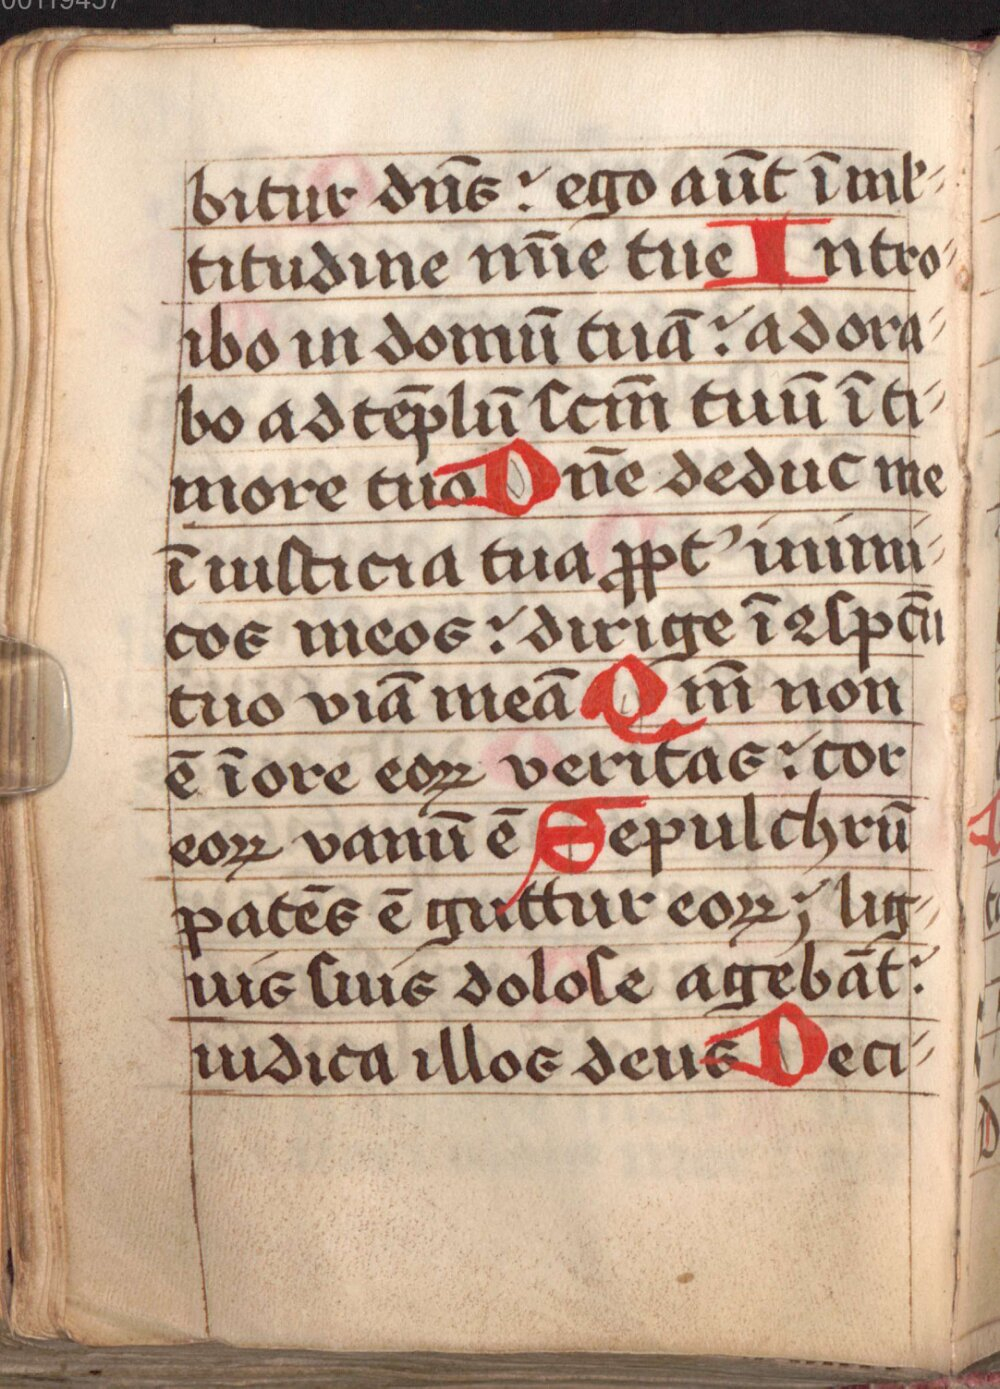 00119457
bitur dn̄s: ego aūt ī ml̄-
titudine mīe tue Intro-
ibo in domū tuā: adora-
bo ad tēplū scm̄ tuū ī ti-
more tuo Dn̄e deduc me
ī iusticia tua ꝓpt' inimi-
cos meos: dirige ī ꝯspcū
tuo viā meā Qm̄ non
ē ī ore eoꝝ veritas: cor
eoꝝ vanū ē Sepulchrū
patēs ē guttur eoꝝ; lig-
uis suis dolose agebāt:
iudica illos deus Deci-